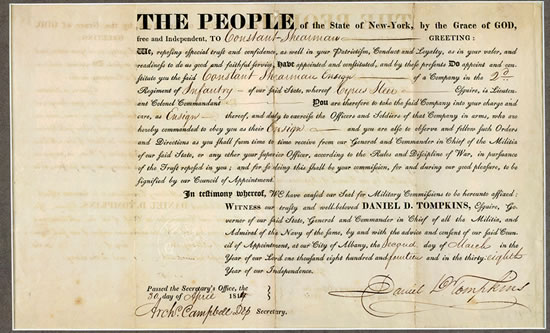 THE PEOPLE of the State of New-York, by the Grace of GOD,
free and Independent, TO Constant Shearman GREETING:
We, reposing especial trust and confidence, as well in your Patriotism, Conduct and Loyalty, as in your valor, and
readiness to do us good and faithful service, Have appointed and constituted, and by these presents Do appoint and con-
stitute you the said Constant Shearman Ensign of a Company in the 2d
Regiment of Infantry of our said State, whereof Cyrus Esquire, is Lieuten-
ant Colonel Commandant You are therefore to take the said Company into your charge and
care, as Ensign thereof, and duly to exercise the Officers and Soldiers of that Company in arms, who are
hereby commanded to obey you as their Ensign and you are also to observe and follow such Orders
and Directions as you shall from time to time receive from our General and Commander in Chief of the Militia
of our said State, or any other your Superior Officer, according to the Rules and Discipline of War, in pursuance
of the Trust reposed in you; and for so doing this shall be your commission, for and during our good pleasure, to be
signified by our Council of Appointment.
In testimony whereof, We have caused our Seal for Military Commissions to be hereunto affixed:
WITNESS our trusty and well-beloved DANIEL D. TOMPKINS, Esquire, Go-
vernor of our said State, General and Commander in Chief of all the Militia, and
Admiral of the Navy of the same, by and with the advice and consent of our said Coun-
cil of Appointment, at our City of Albany, the second day of March in the
Year of our Lord one thousand eight hundred and fourteen and in the thirty eighth
Year of our Independence.
Passed the Secretary's Office, the
30 day of April 1814
Archd. Campbell Dep Secretary.
Daniel D Tompkins